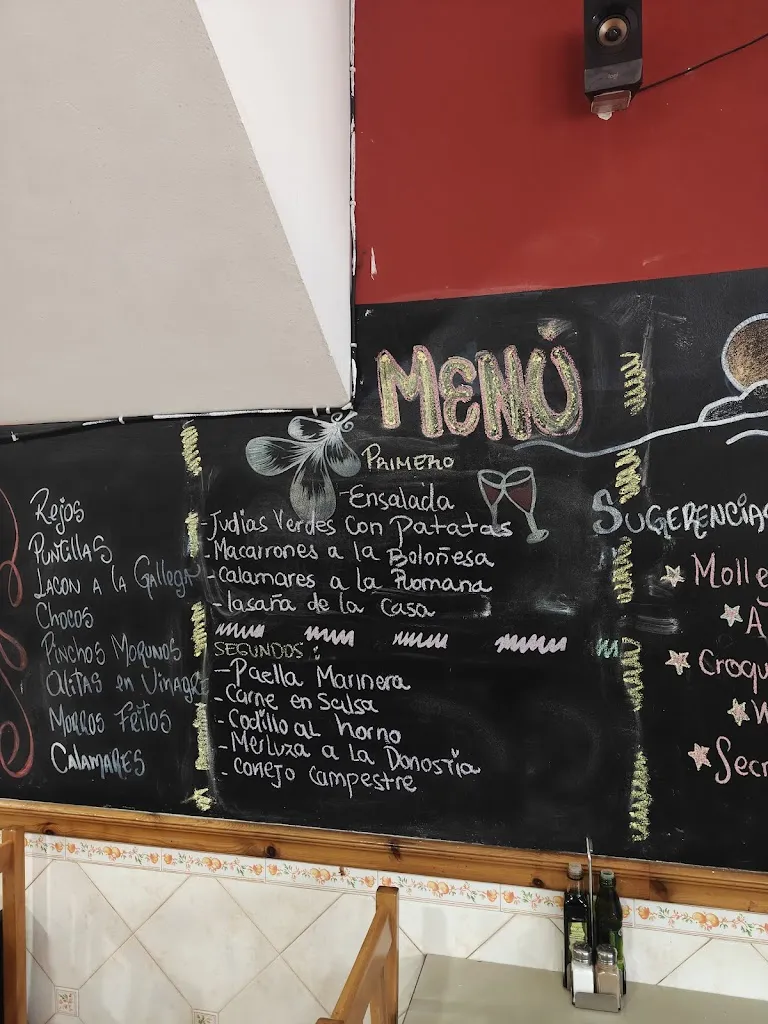 Rejos
Puntillas
Lacon a la Gallega
Chocos
Pinchos Morunos
Alitas en Vinagre
Morros Fritos
Calamares
MENÚ
Primero
-Ensalada
-Judias Verdes con Patatas
-Macarrones a la Boloñesa
-Calamares a la Romana
-lasaña de la casa
SEGUNDOS:
-Paella Marinera
-Carne en Salsa
-Codillo al horno
-Merluza a la Donostia
-Conejo campestre
SUGERENCIAS
Molle
Croqu
Secr